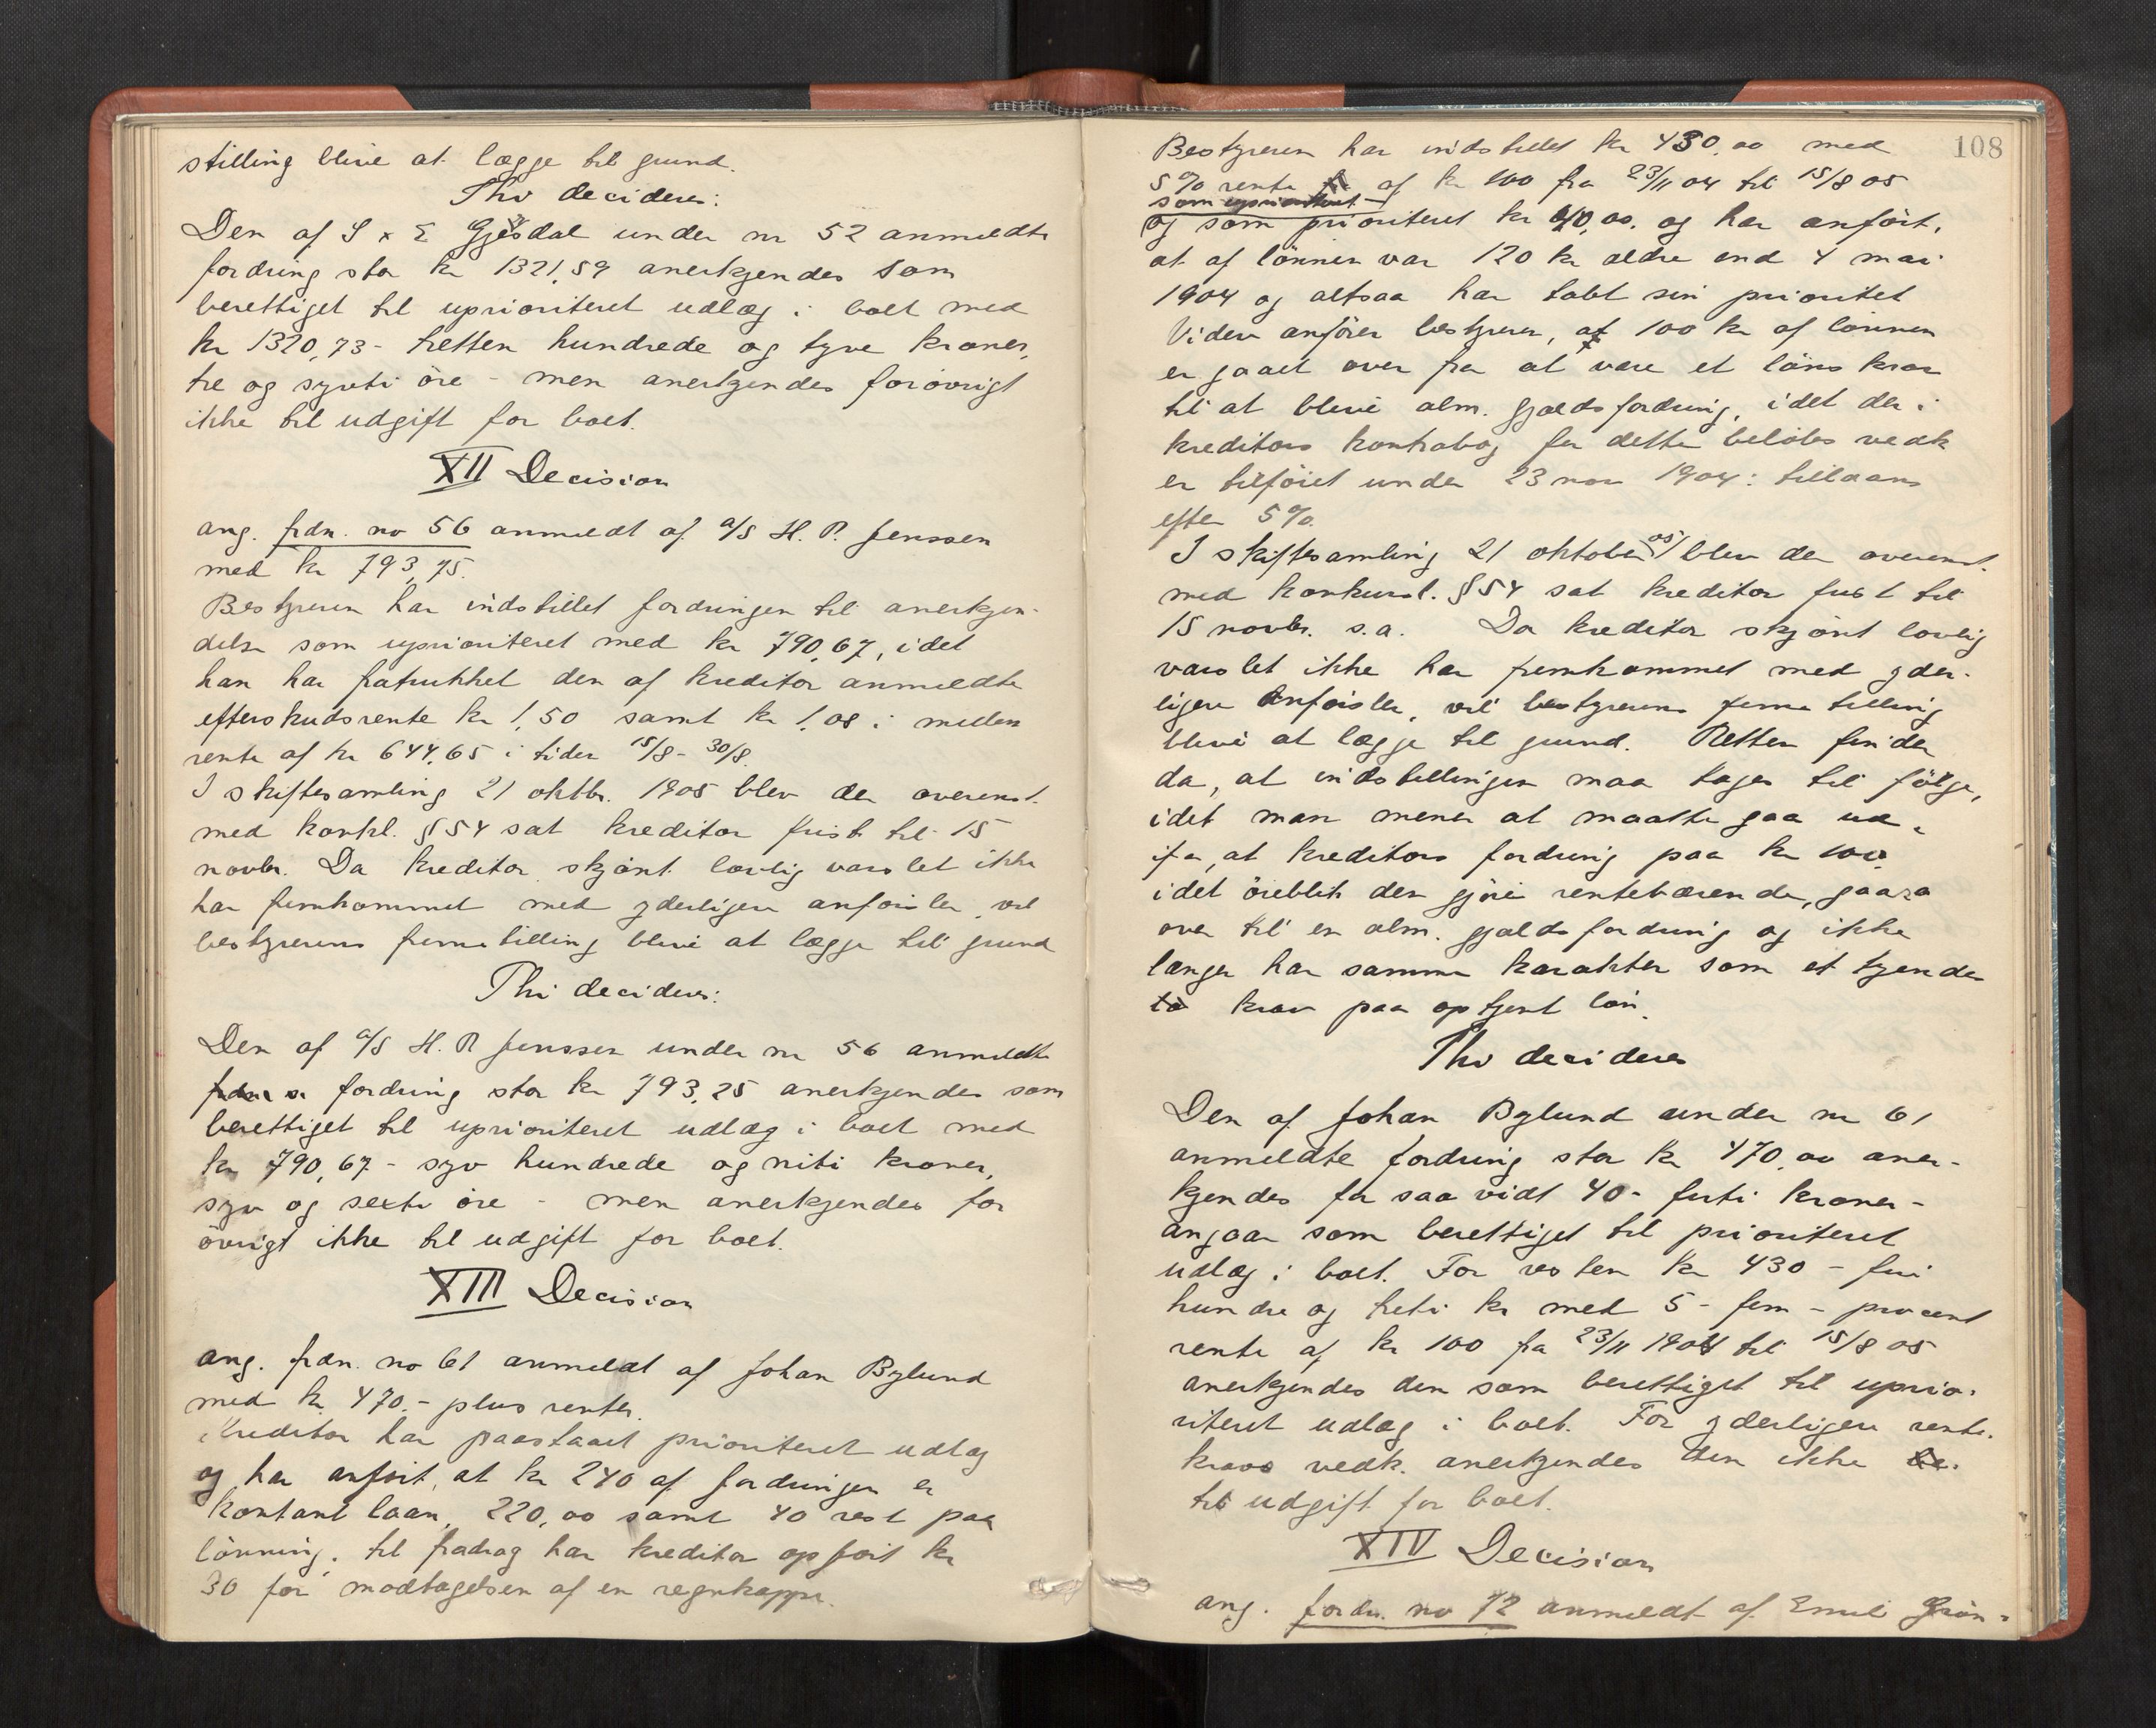 stilling blive at lægge til grund.
Thi decideres:
Den af S & E Gjesdal under nr 52 anmeldte
fordring stor kr 1321,59 anerkjendes som
berettiget til uprioriteret udlæg i boet med
kr 1320,73 - tretten hundrede og tyve kroner,
tre og sytti øre - men anerkjendes forøvrigt
ikke til udgift for boet.
XII Decision
ang. frdn. no 56 anmeldt af a/s H. P. Jenssen
med kr 793,75.
Bestyreren har indstillet fordringen til anerkjen-
delse som uprioriteret med kr 790,67, idet
han har fratrukket den af kreditor anmeldte
efterskudsrente kr 1,50 samt kr 1,08 i mellem
rente af kr 644,65 i tiden 15/8 - 30/8.
I skiftesamling 21 oktbr. 1905 blev der overenst.
med konkl. § 54 sat kreditor frist til 15
novbr. Da kreditor skjønt lovlig varslet ikke
har fremkommet med yderligere anførsler, vil
bestyrerens fremstilling blive at lægge til grund
Thi decideres:
Den af a/s H. P. Jenssen under nr 56 anmeldte
fordring stor kr 793,25 anerkjendes som
berettiget til uprioriteret udlæg i boet med
kr 790,67 - syv hundrede og niti kroner,
syv og sexti øre - men anerkjendes for
øvrigt ikke til udgift for boet.
XIII Decision
ang. frdn. no 61 anmeldt af Johan Bylund
med kr 470.- plus renter.
Kreditor har paastaaet prioriteret udlæg
og har anført, at kr 240 af fordringen er
kontant laan, 220,00 samt 40 rest paa
lønning. til fradrag har kreditor opført kr
30 for modtagelsen af en regnkappe.
108
Bestyreren har indstillet kr 430,00 med
5 % rente af kr 100 fra 23/11 04 til 15/8 05
som uprioritert
og som prioriteret kr 40,00. og har anført,
at af lønnen var 120 kr ældre end 4 mai
1904 og altsaa har tabt sin prioritet
Videre anfører bestyreren, at 100 kr af lønnen
er gaaet over fra at være et løns krav
til at blive alm. gjældsfordring, idet der i
kreditors kontrabog for dette beløbs vedk
er tilføiet under 23 nov 1904: tillaans
efter 5 %.
I skiftesamling 21 oktober 05 blev der overenst.
med konkursl. § 54 sat kreditor frist til
15 novbr. s.a. Da kreditor skjønt lovlig
varslet ikke har fremkommet med yder-
ligere anførsler, vil bestyrerens fremstilling
blive at lægge til grund. Retten finder
da, at indstillingen maa tages til følge,
idet man mener at maatte gaa ud
ifra, at kreditors fordring paa kr 100
idet øieblik den gjøres rentebærende, gaar
over til en alm. gjældsfordring og ikke
længer har samme karakter som et tyendes
krav paa optjent løn.
Thi decideres
Den af Johan Bylund under nr 61
anmeldte fordring stor kr 470,00 aner-
kjendes for saa vidt 40 - firti kroner -
angaar som berettiget til prioriteret
udlæg i boet. For resten kr 430 - fire
hundre og treti kr med 5 - fem - procent
rente af kr 100 fra 23/11 1904 til 15/8 05
anerkjendes den som berettiget til uprio-
riteret udlæg i boet. For yderligere rente-
kravs vedk. anerkjendes den ikke
til udgift for boet.
XIV Decision
ang. fordr. no 72 anmeldt af Emil Grøn-